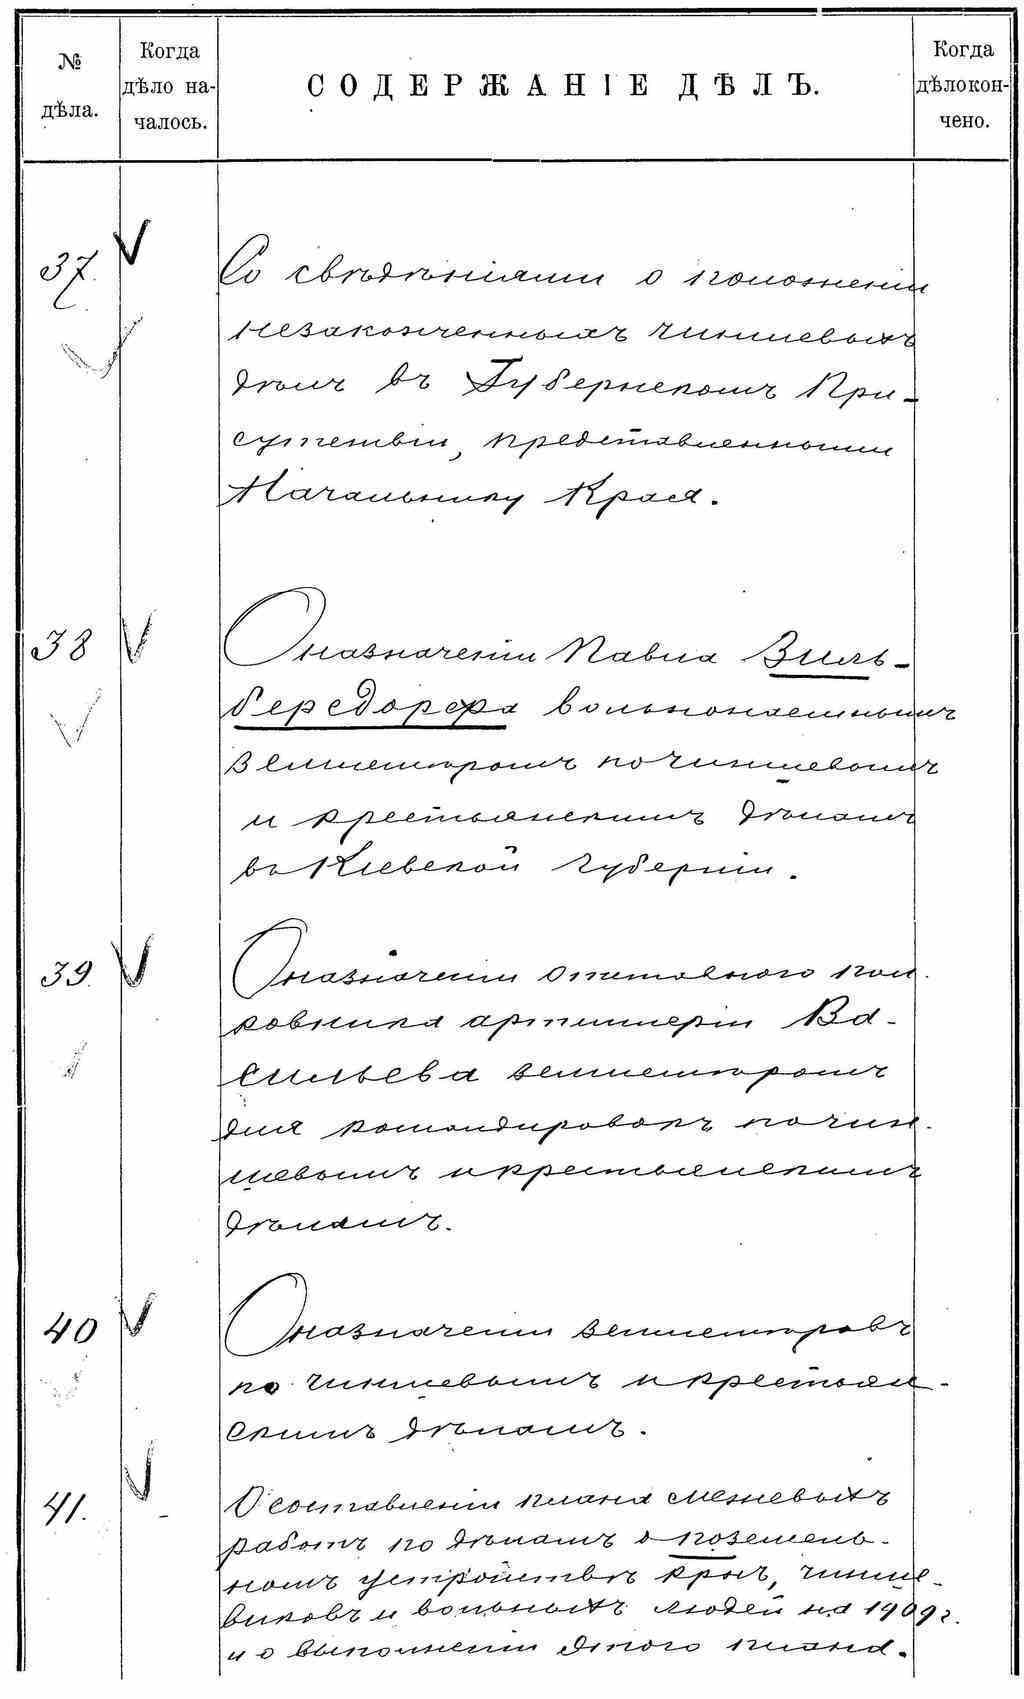 № дѣла.
Когда дѣло на-
чалось.
СОДЕРЖАНІЕ ДѢЛЪ.
Когда дѣло кон-
чено.
37. Со свѣдѣніями о положеніи
незаконченныхъ чиншевыхъ
дѣлъ въ Губернскомъ При-
сутствіи, представленными
Начальнику Края.
38 О назначеніи Павла Зиль-
берсдорфа вольнонаемнымъ
землемѣромъ по чиншевымъ
и крестьянскимъ дѣламъ
въ Кіевской губерніи.
39. О назначеніи отставного пол-
ковника артиллеріи Ва-
сильева землемѣромъ
для командировокъ по чин-
шевымъ и крестьянскимъ
дѣламъ.
40 О назначеніи землемѣровъ
по чиншевымъ и крестьян-
скимъ дѣламъ.
41. О составленіи плана межевыхъ
работъ по дѣламъ о поземель-
номъ устройствѣ крнъ, чинше-
виковъ и вольныхъ людей на 1909 г.
и о выполненіи этого плана.